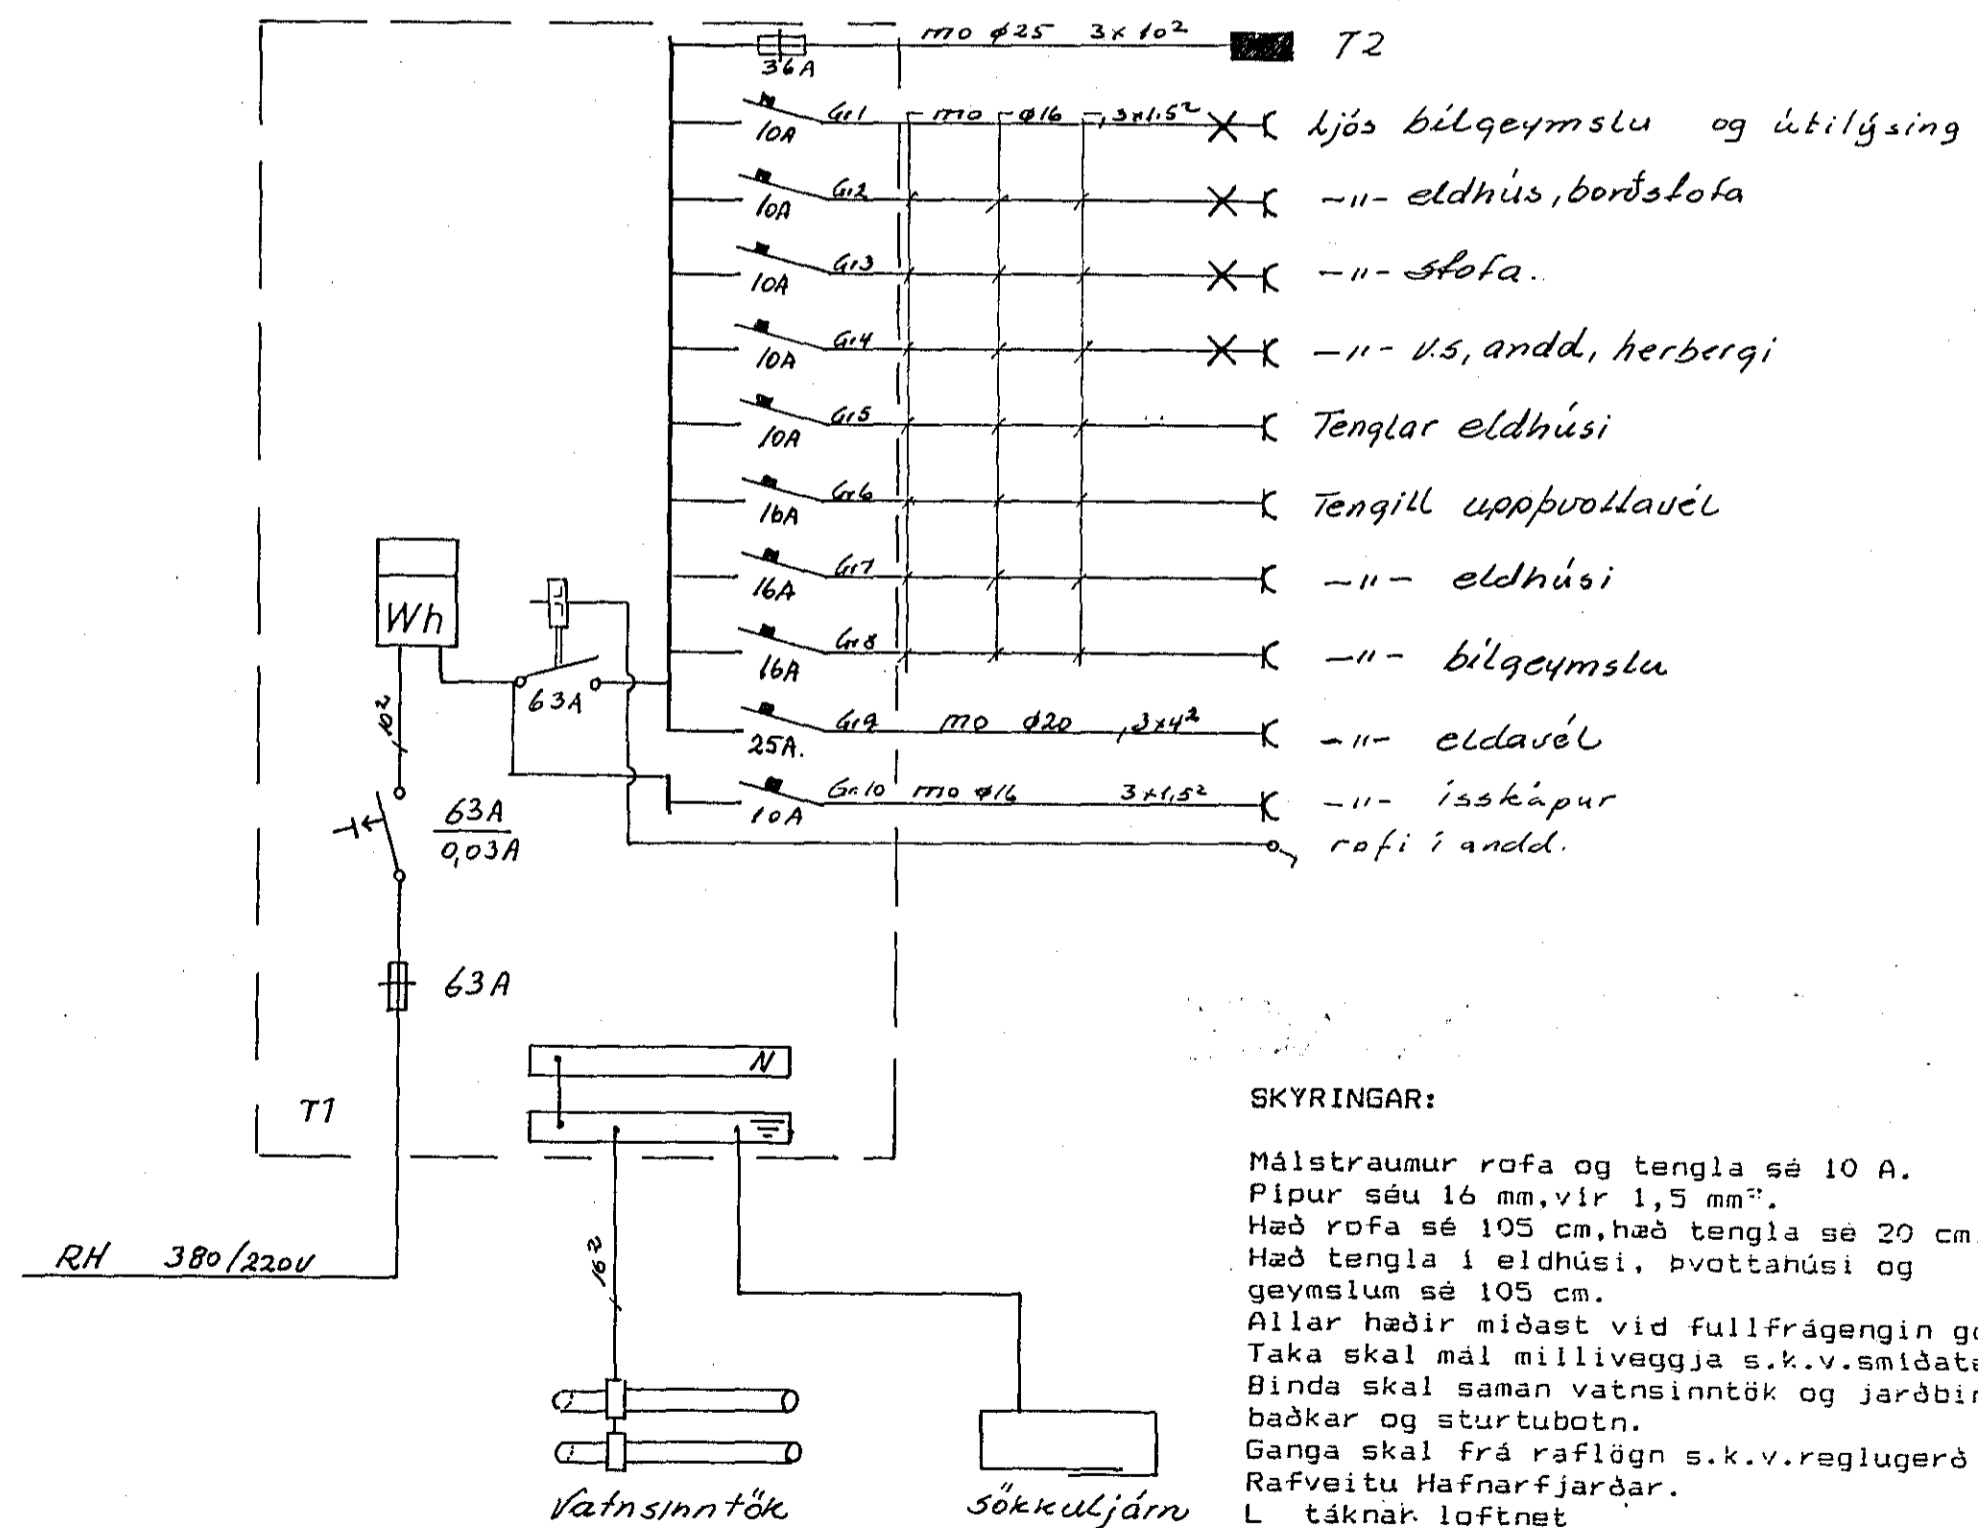 mo ø25 3x10² T2
36A
Gr1 mo ø16 3x1,5² Ljós bílgeymslu og útilýsing
10A
Gr2 -"- eldhús, borðstofa
10A
Gr3 -"- stofa.
10A
Gr4 -"- v.s, andd, herbergi
10A
Gr5 Tenglar eldhúsi
10A
Gr6 Tengill uppþvottavél
16A
Gr7 -"- eldhúsi
16A
Wh
Gr8 -"- bílgeymslu
16A
63A
10²
Gr9 mo ø20 3x4² -"- eldavél
25A.
Gr.10 mo ø16 3x1,5² -"- ísskápur
10A
63A
0,03A
rofi í andd.
63A
N
T1
RH 380/220V
16²
Vatnsinntök
sökkuljárn
SKYRINGAR:
Málstraumur rofa og tengla sé 10 A.
Pípur séu 16 mm,vír 1,5 mm².
Hæð rofa sé 105 cm,hæð tengla sé 20 cm.
Hæð tengla í eldhúsi, þvottahúsi og
geymslum sé 105 cm.
Allar hæðir miðast vid fullfrágengin
Taka skal mál milliveggja s.k.v.
Binda skal saman vatnsinntök og
baðkar og sturtubotn.
Ganga skal frá raflögn s.k.v.reglugerð
Rafveitu Hafnarfjarðar.
L táknar loftnet